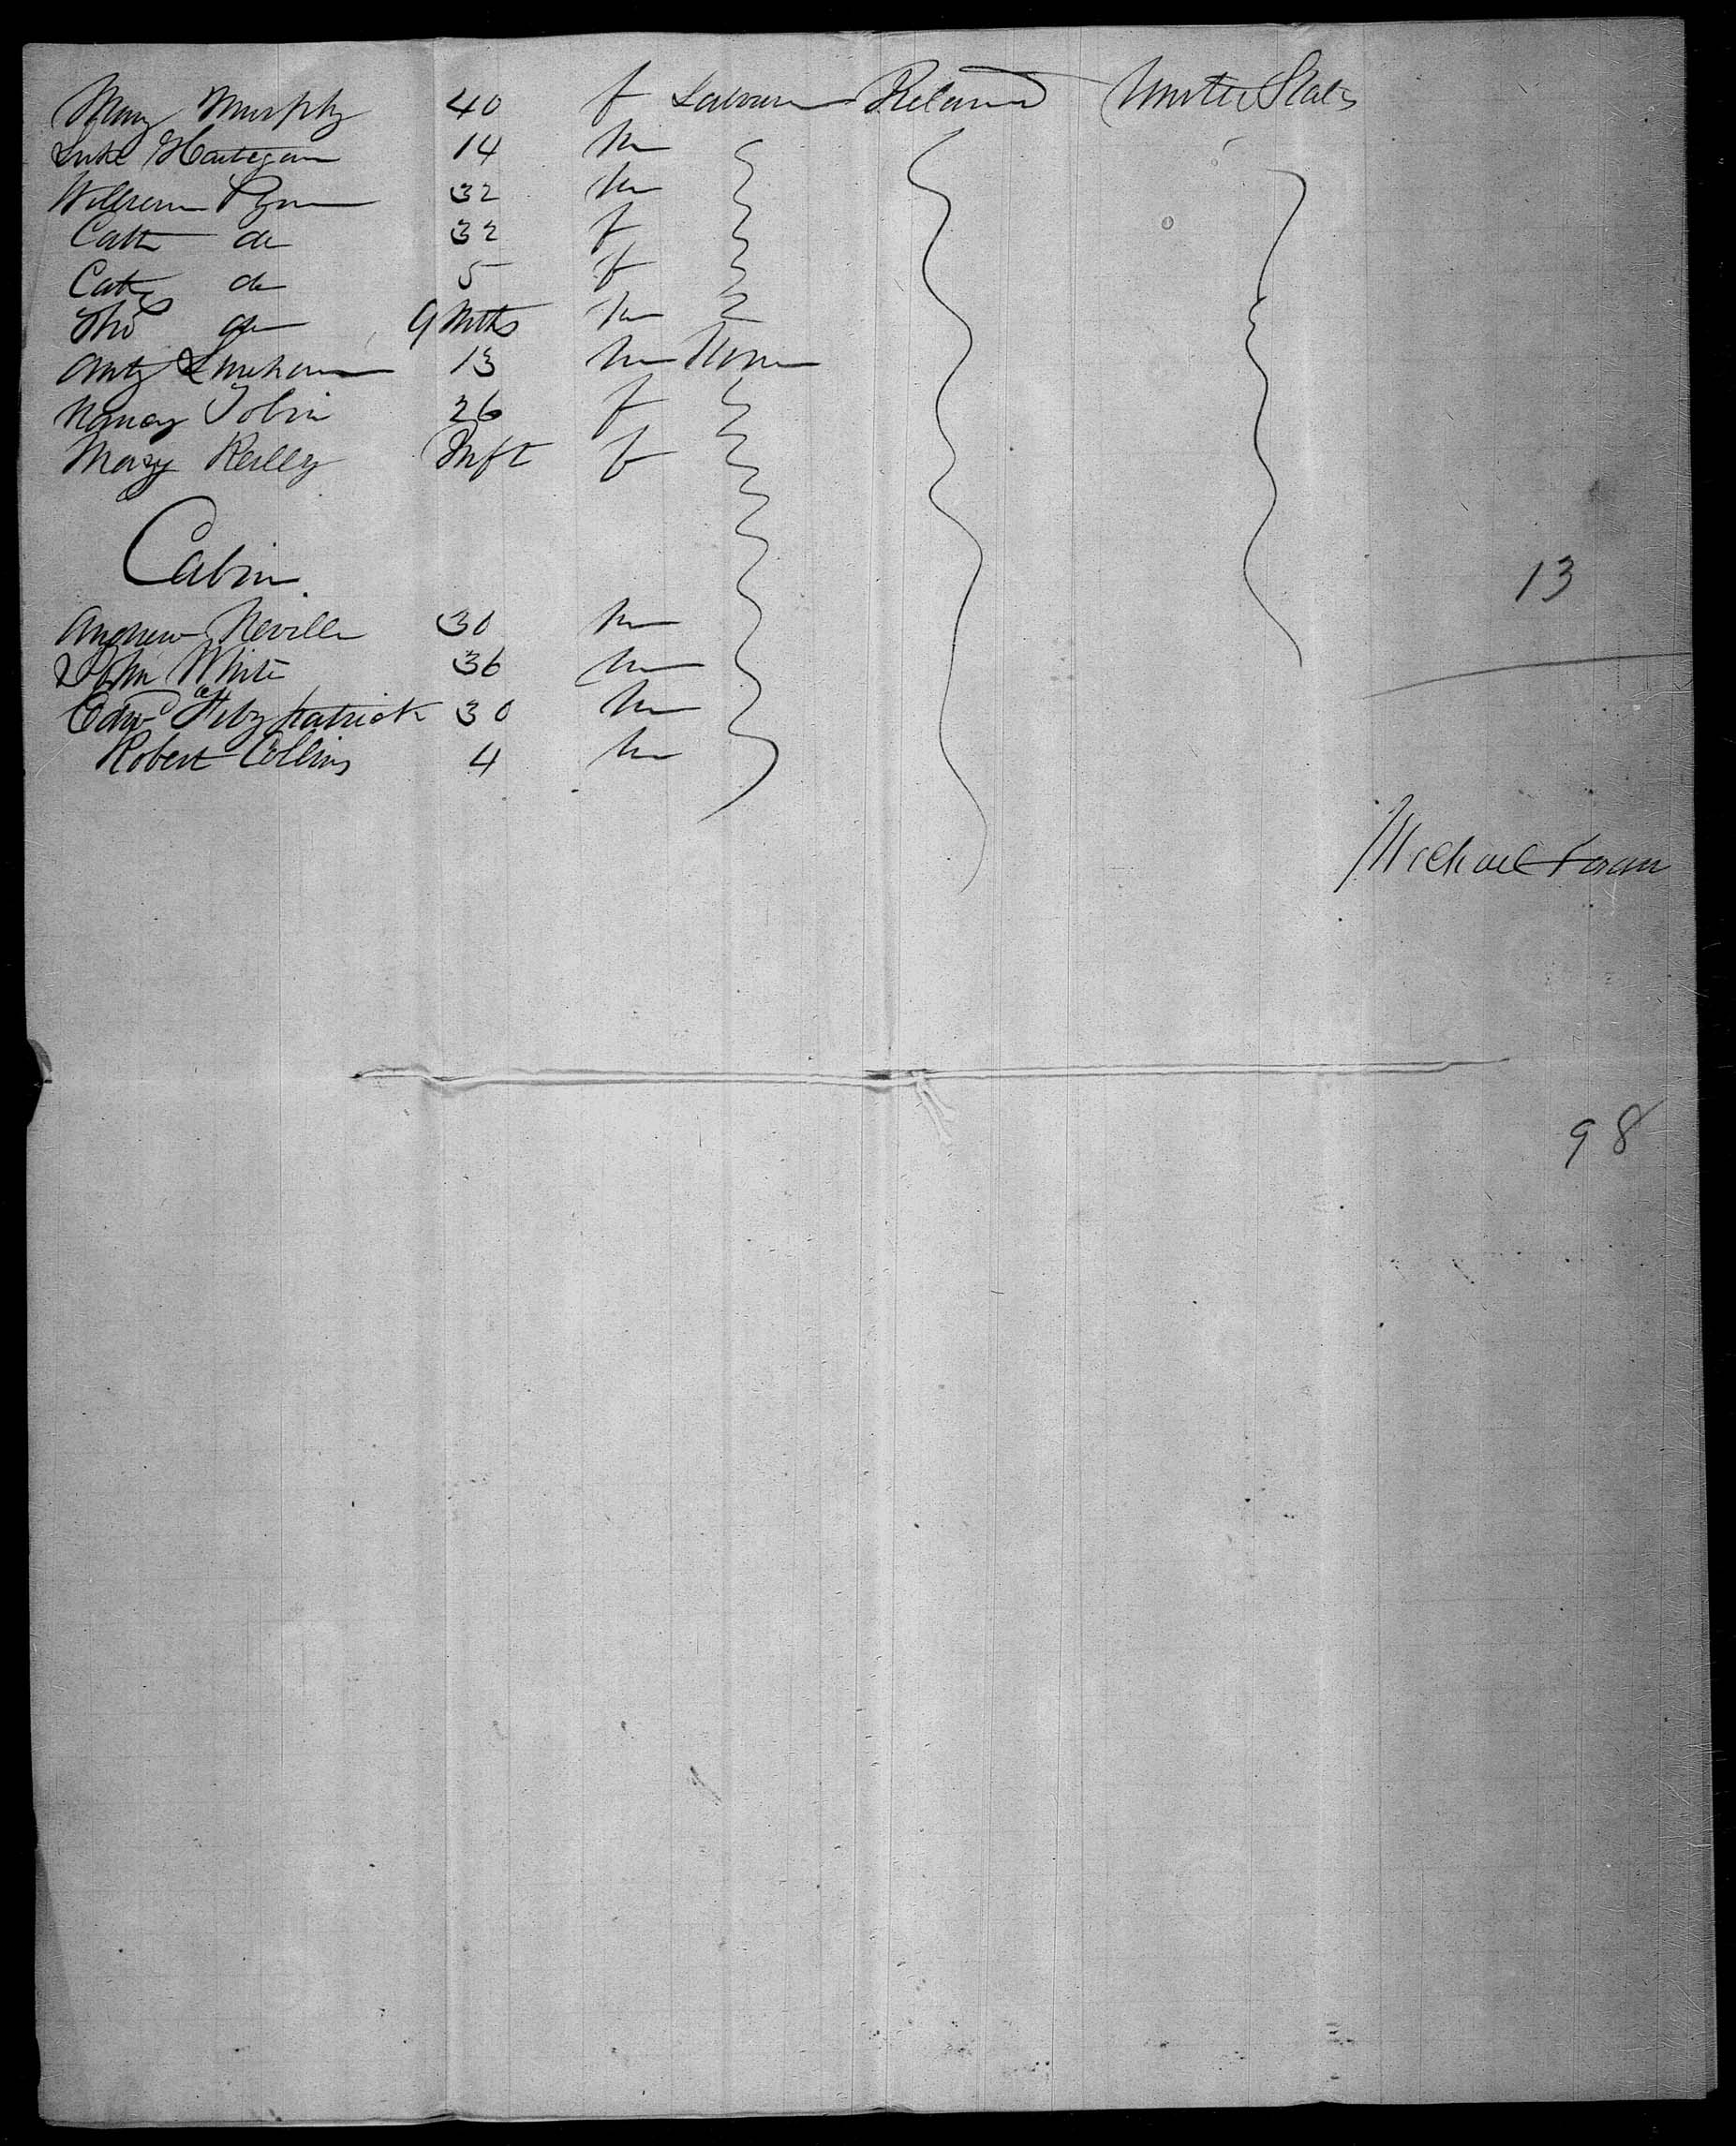 Mary Murphy 40 f Labourer Ireland United States
Luke Hartegan 14 m
William Ryan 32 m
Cath do 32 f
Cath do 5 f
Thos do 9 Mths m
13 m None
Nancy Tobin 26 f
Mary Reilly Inft f
Cabin
Andrew Neville 30 m
John White 36 m
Edwd Fitzpatrick 30 m
Robert Collins 4 m
13
Michael Foran
98